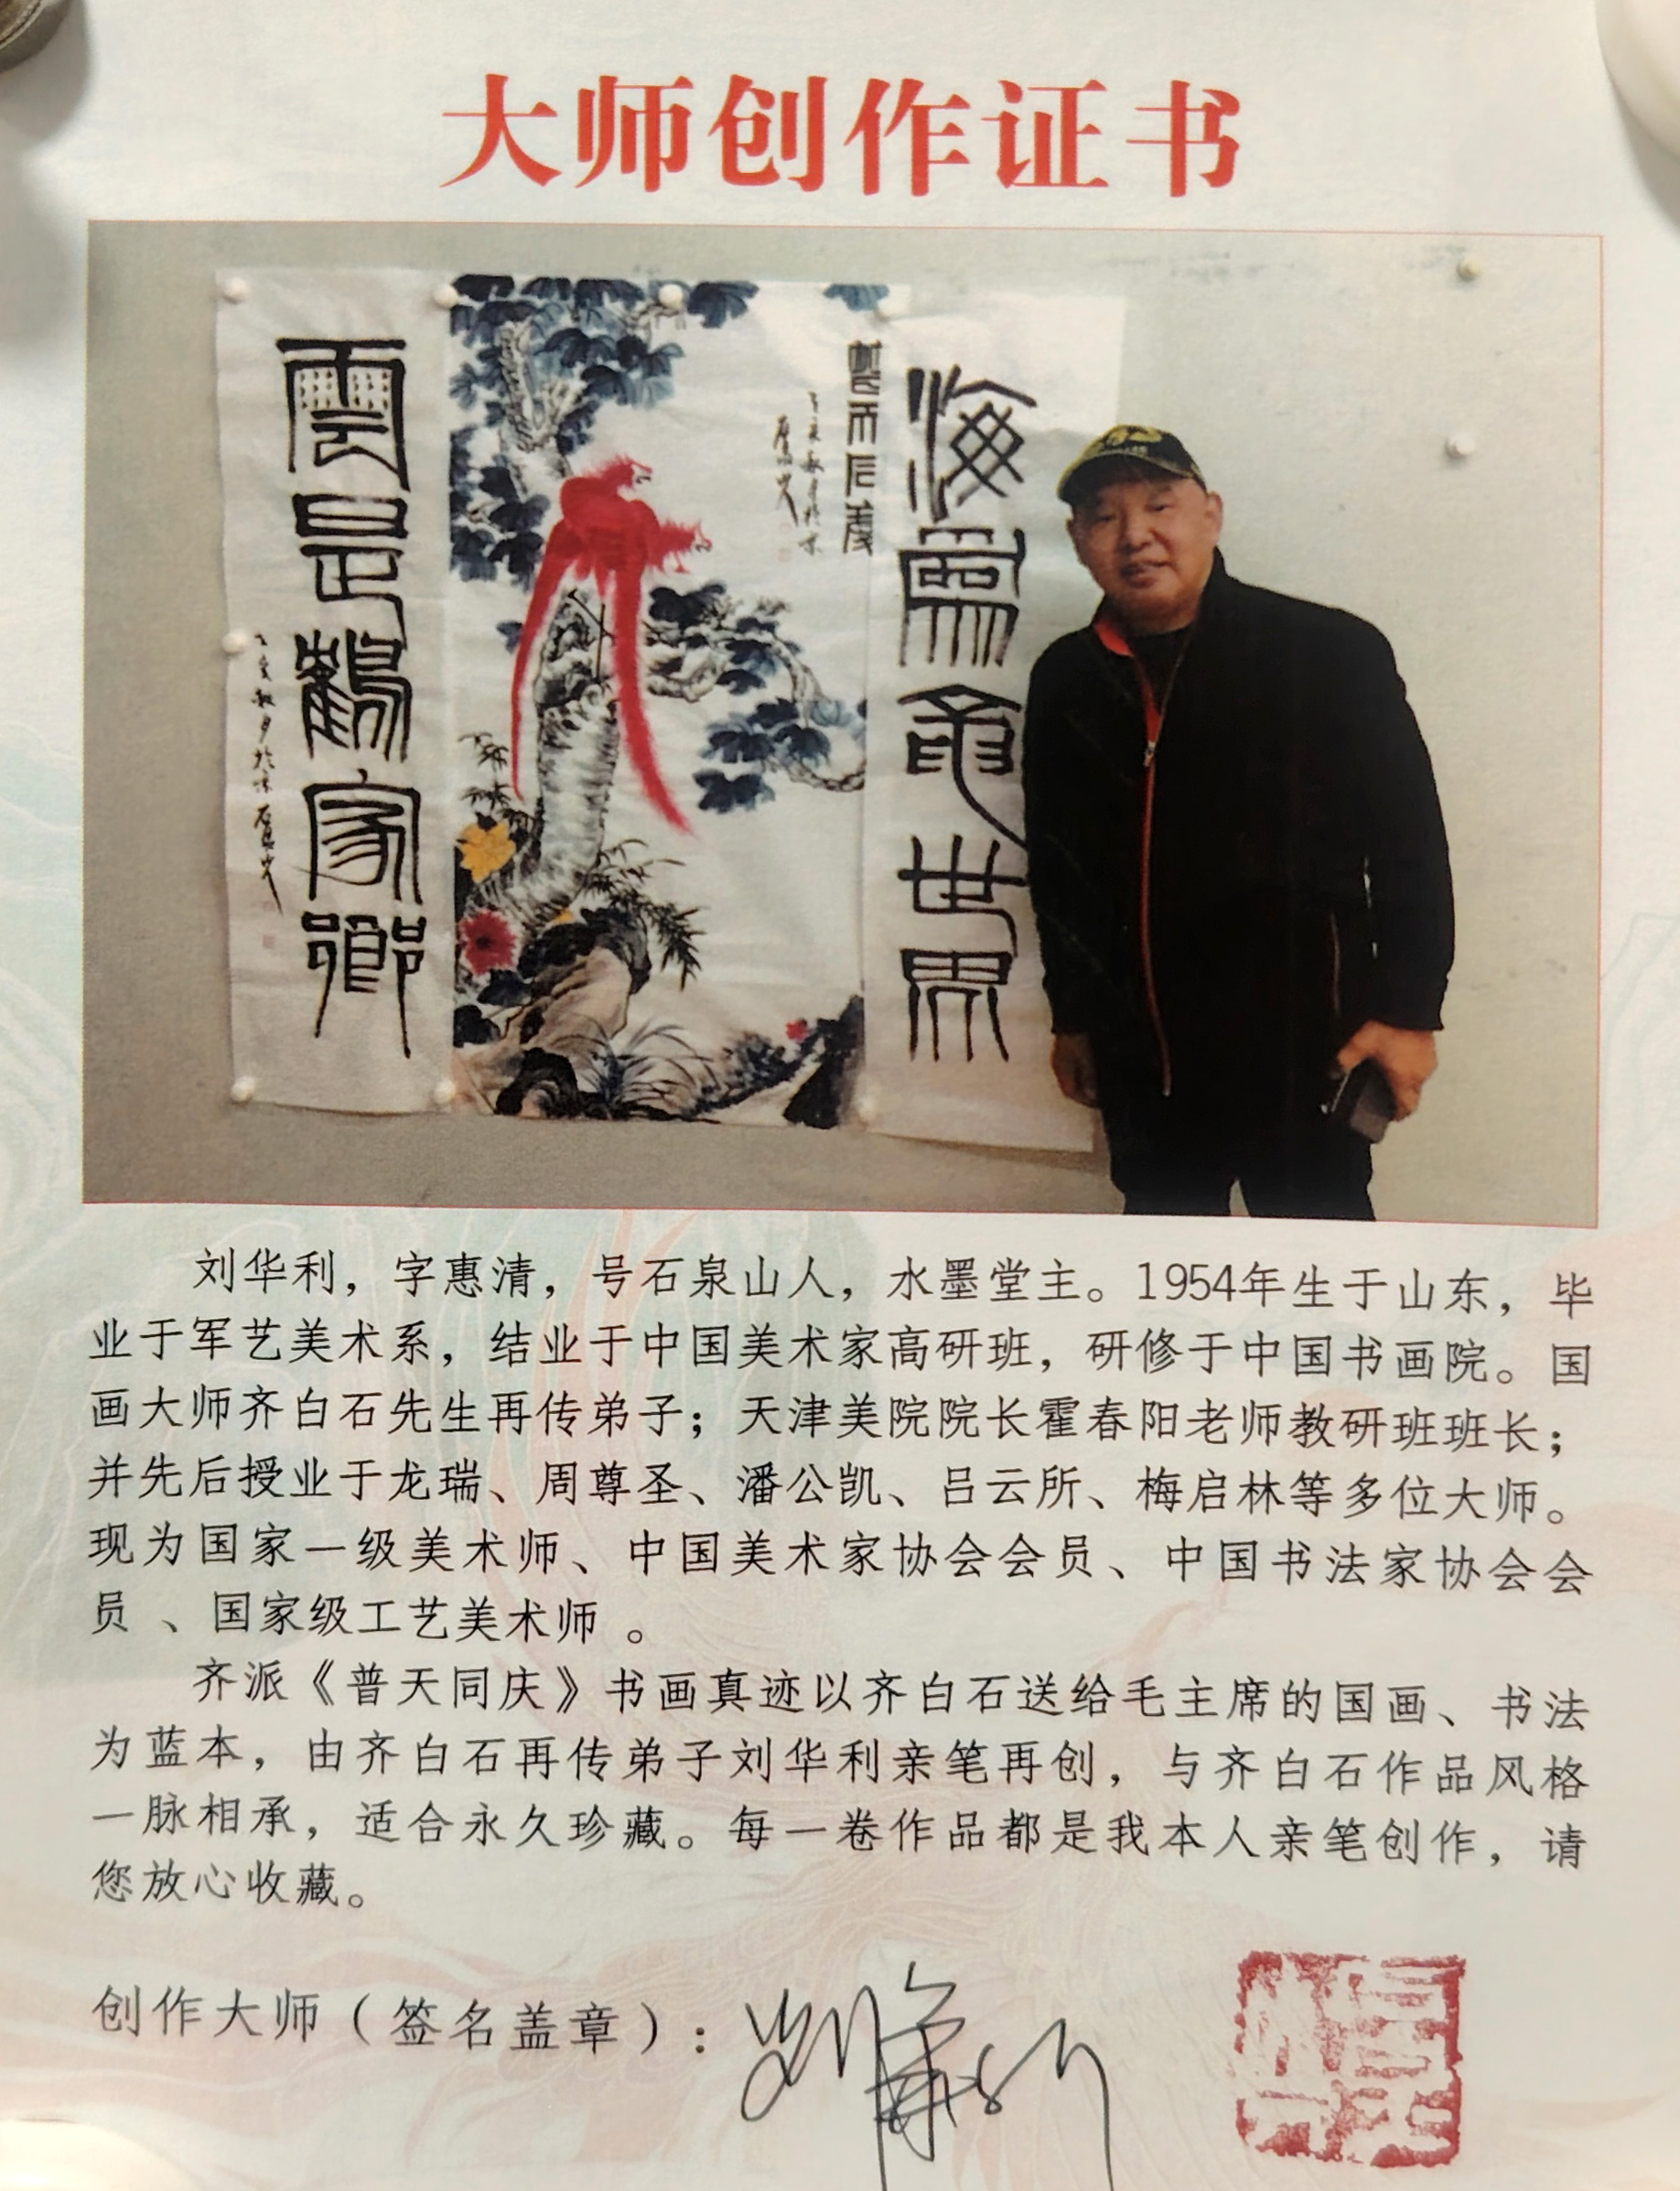 大师创作证书
雲是鶴家鄉
海為龍世界
刘华利，字惠清，号石泉山人，水墨堂主。1954年生于山东，毕
业于军艺美术系，结业于中国美术家高研班，研修于中国书画院。国
画大师齐白石先生再传弟子；天津美院院长霍春阳老师教研班班长；
并先后授业于龙瑞、周尊圣、潘公凯、吕云所、梅启林等多位大师。
现为国家一级美术师、中国美术家协会会员、中国书法家协会会
员 、国家级工艺美术师 。
齐派《普天同庆》书画真迹以齐白石送给毛主席的国画、书法
为蓝本，由齐白石再传弟子刘华利亲笔再创，与齐白石作品风格
一脉相承，适合永久珍藏。每一卷作品都是我本人亲笔创作，请
您放心收藏。
创作大师（签名盖章）：刘华利